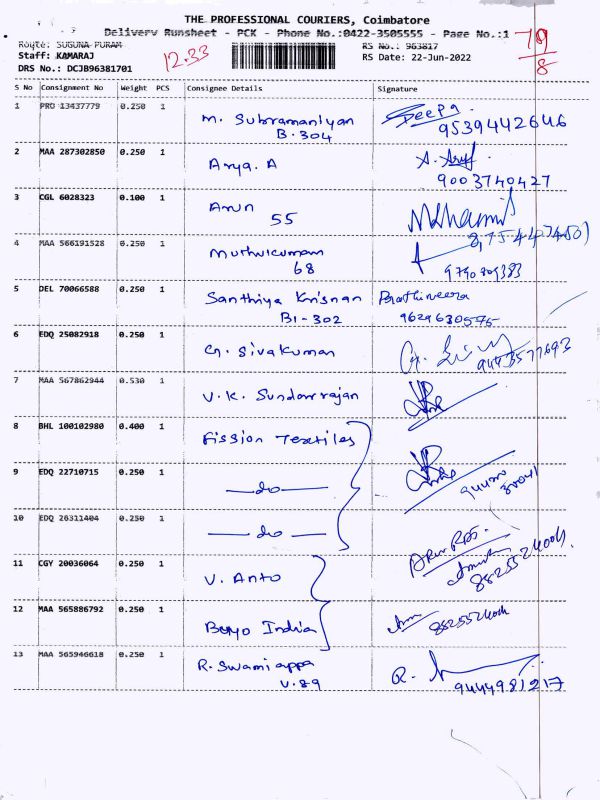 THE PROFESSIONAL COURIERS, Coimbatore
Delivery Runsheet - PCK - Phone No.:0422-3505555 - Page No.:1
Route: SUGUNA PURAM
RS No.: 963817
Staff: KAMARAJ
RS Date: 22-Jun-2022
DRS No.: DCJB96381701
12.33
79
8
S No Consignment No Weight PCS Consignee Details Signature
1 PRO 13437779 0.250 1 M. Subramaniyan Deepa
B.304 9539442646
2 MAA 287302850 0.250 1 Arya. A A.
9003740427
3 CGL 6028323 0.100 1 Arun
55
4 MAA 566191528 0.250 1 Muthukumar
68
5 DEL 70066588 0.250 1 Santhiya Krisnan
B1-302 9629630575
6 EDQ 25082918 0.250 1 G. Sivakumar G.
9443577693
7 MAA 567862944 0.530 1 V.K. Sundarrajan
8 BHL 100102980 0.400 1 Fission Textiles
9 EDQ 22710715 0.250 1 —do—
10 EDQ 26311404 0.250 1 —do—
11 CGY 20036064 0.250 1 V. Anto
12 MAA 565886792 0.250 1 India
13 MAA 565946618 0.250 1 R. Swamiappa R.
V.89 9444981217